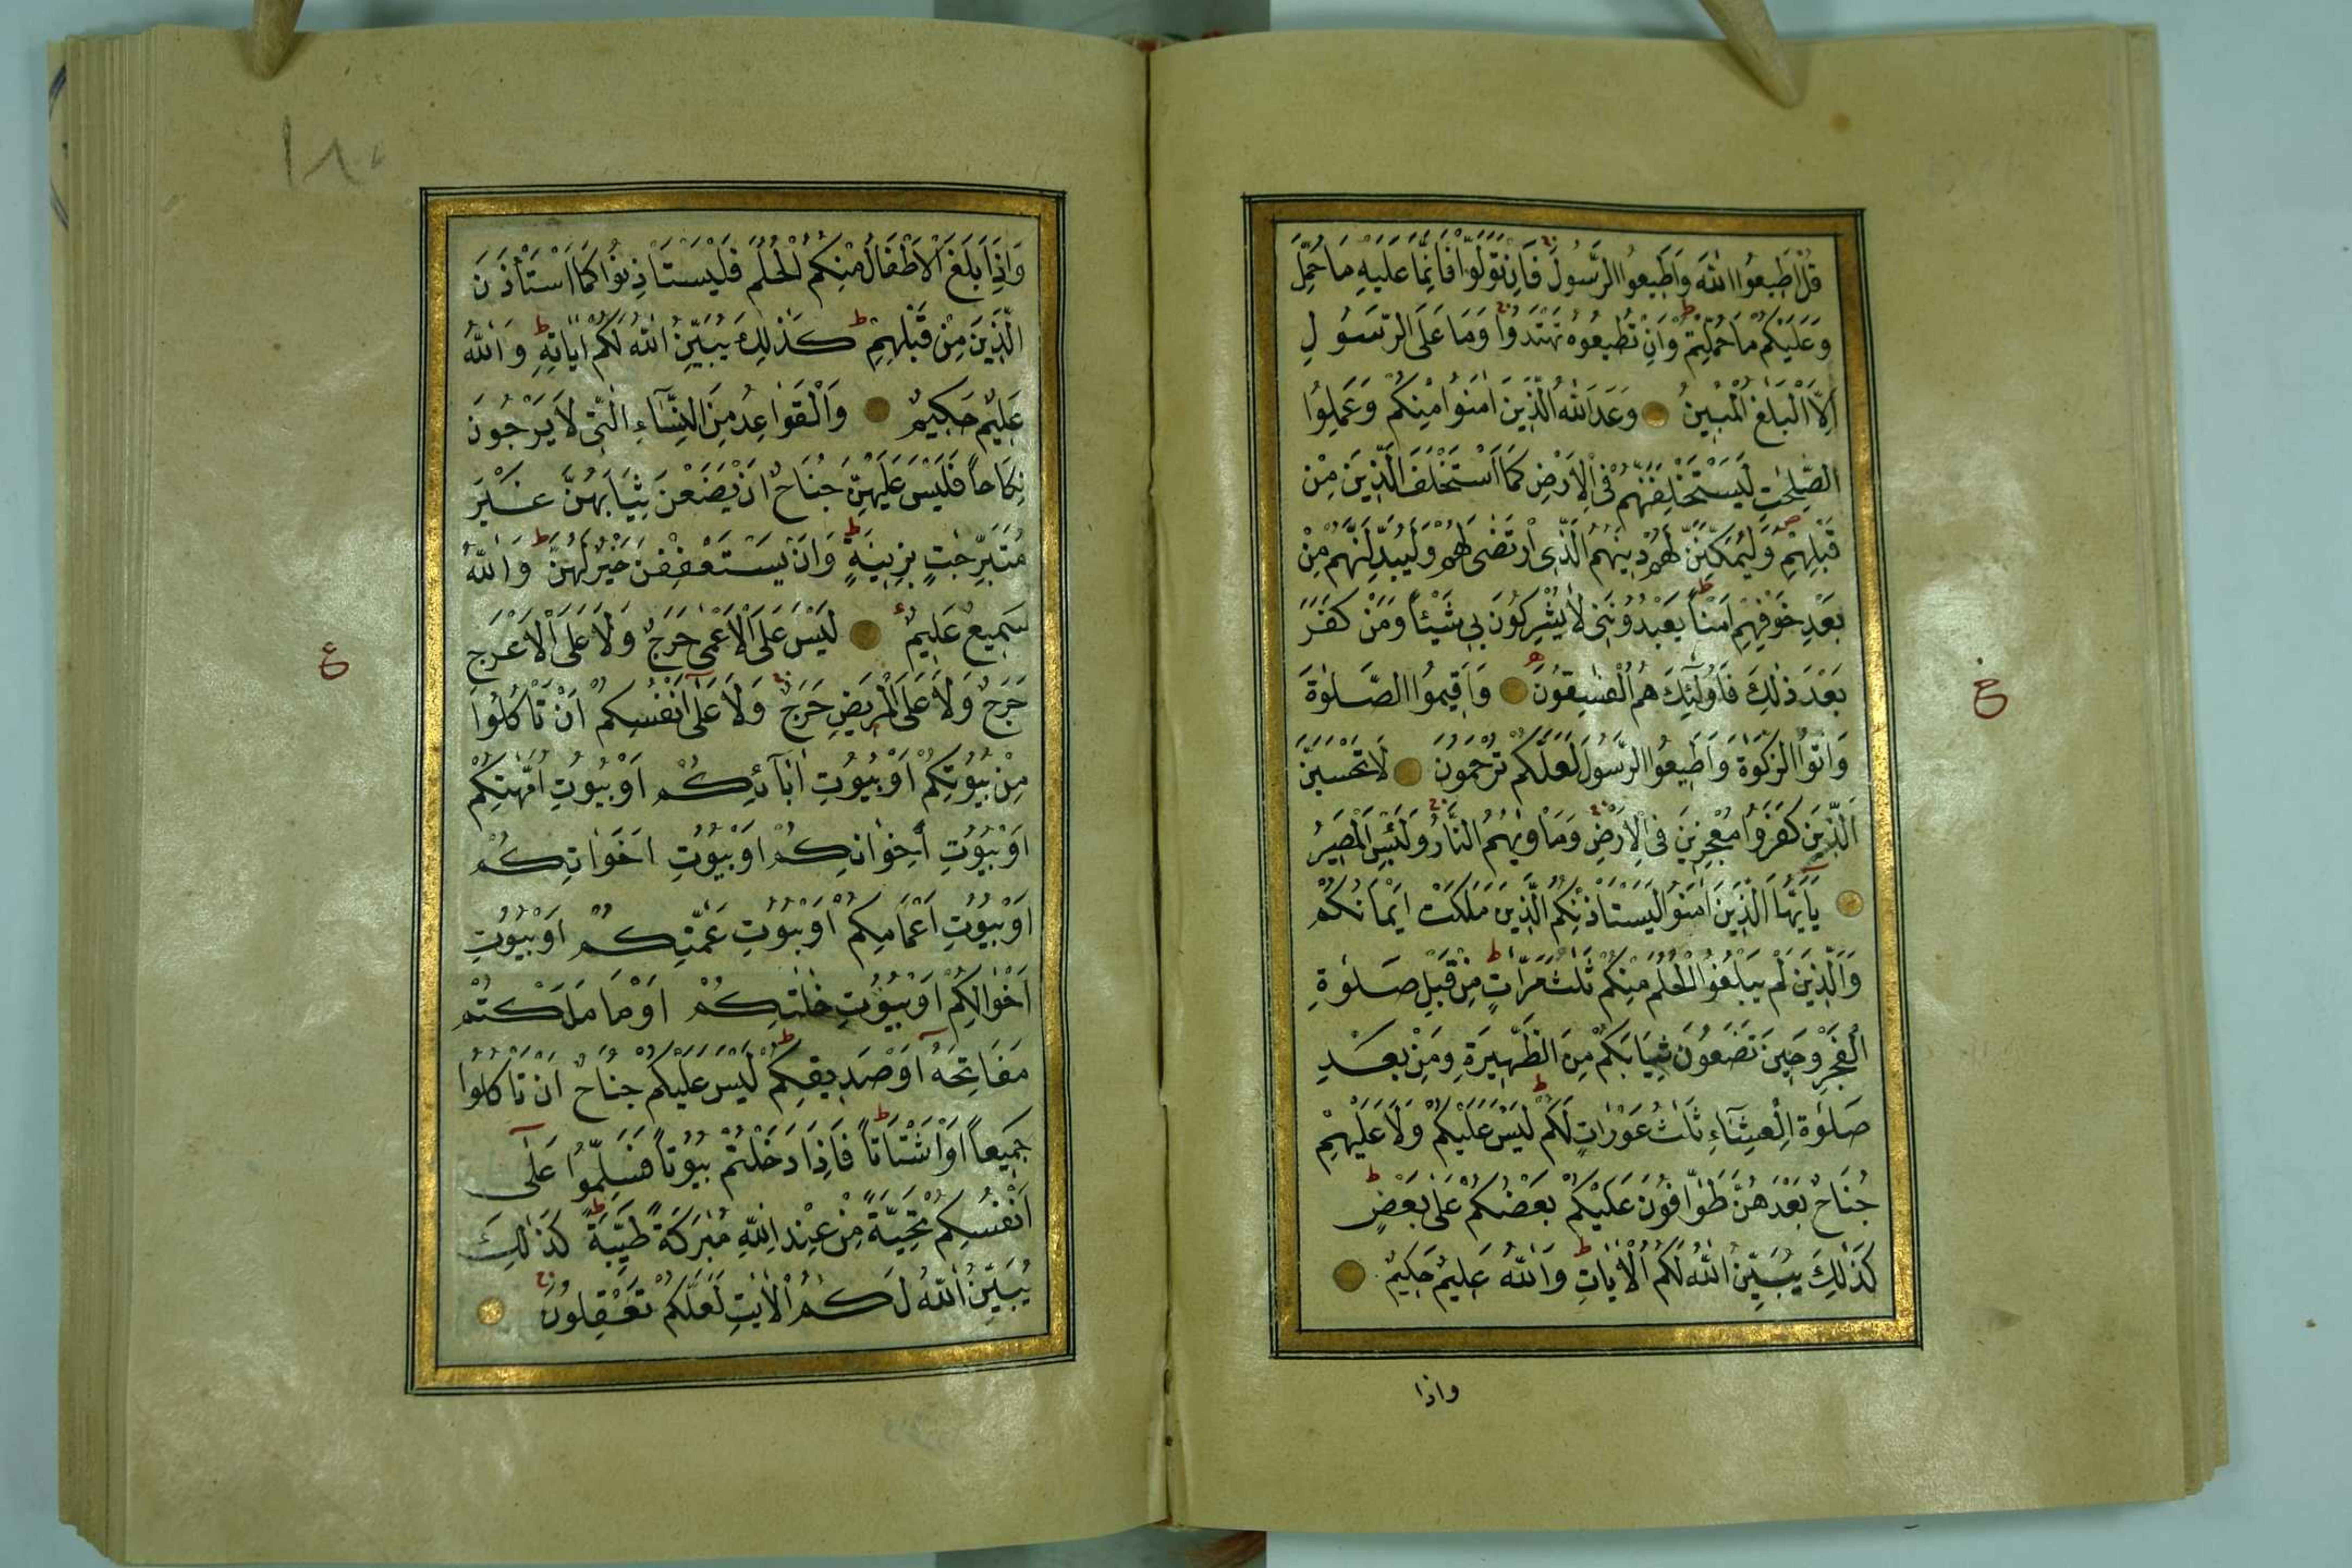 قُلْ اَطِيعُوا اللّٰهَ وَاَطِيعُوا الرَّسُولَ فَاِنْ تَوَلَّوْا فَاِنَّمَا عَلَيْهِ مَا حُمِّلَ
وَعَلَيْكُمْ مَا حُمِّلْتُمْ وَاِنْ تُطِيعُوهُ تَهْتَدُوا وَمَا عَلَى الرَّسُولِ
اِلَّا الْبَلَاغُ الْمُبِينُ وَعَدَ اللّٰهُ الَّذِينَ اٰمَنُوا مِنْكُمْ وَعَمِلُوا
الصّٰلِحٰتِ لَيَسْتَخْلِفَنَّهُمْ فِى الْاَرْضِ كَمَا اسْتَخْلَفَ الَّذِينَ مِنْ
قَبْلِهِمْ وَلَيُمَكِّنَنَّ لَهُمْ دِينَهُمُ الَّذِى ارْتَضٰى لَهُمْ وَلَيُبَدِّلَنَّهُمْ مِنْ
بَعْدِ خَوْفِهِمْ اَمْنًا يَعْبُدُونَنِى لَا يُشْرِكُونَ بِى شَيْئًا وَمَنْ كَفَرَ
بَعْدَ ذٰلِكَ فَاُولٰٓئِكَ هُمُ الْفٰسِقُونَ وَاَقِيمُوا الصَّلٰوةَ
وَاٰتُوا الزَّكٰوةَ وَاَطِيعُوا الرَّسُولَ لَعَلَّكُمْ تُرْحَمُونَ لَا تَحْسَبَنَّ
الَّذِينَ كَفَرُوا مُعْجِزِينَ فِى الْاَرْضِ وَمَاْوٰيهُمُ النَّارُ وَلَبِئْسَ الْمَصِيرُ
يَٓا اَيُّهَا الَّذِينَ اٰمَنُوا لِيَسْتَاْذِنْكُمُ الَّذِينَ مَلَكَتْ اَيْمَانُكُمْ
وَالَّذِينَ لَمْ يَبْلُغُوا الْحُلُمَ مِنْكُمْ ثَلٰثَ مَرَّاتٍ مِنْ قَبْلِ صَلٰوةِ
الْفَجْرِ وَحِينَ تَضَعُونَ ثِيَابَكُمْ مِنَ الظَّهِيرَةِ وَمِنْ بَعْدِ
صَلٰوةِ الْعِشَٓاءِ ثَلٰثُ عَوْرَاتٍ لَكُمْ لَيْسَ عَلَيْكُمْ وَلَا عَلَيْهِمْ
جُنَاحٌ بَعْدَهُنَّ طَوَّافُونَ عَلَيْكُمْ بَعْضُكُمْ عَلٰى بَعْضٍ
كَذٰلِكَ يُبَيِّنُ اللّٰهُ لَكُمُ الْاٰيَاتِ وَاللّٰهُ عَلِيمٌ حَكِيمٌ
واذا
١٨٠
وَاِذَا بَلَغَ الْاَطْفَالُ مِنْكُمُ الْحُلُمَ فَلْيَسْتَاْذِنُوا كَمَا اسْتَاْذَنَ
الَّذِينَ مِنْ قَبْلِهِمْ كَذٰلِكَ يُبَيِّنُ اللّٰهُ لَكُمْ اٰيَاتِهِ وَاللّٰهُ
عَلِيمٌ حَكِيمٌ وَالْقَوَاعِدُ مِنَ النِّسَٓاءِ الّٰتِى لَا يَرْجُونَ
نِكَاحًا فَلَيْسَ عَلَيْهِنَّ جُنَاحٌ اَنْ يَضَعْنَ ثِيَابَهُنَّ غَيْرَ
مُتَبَرِّجٰتٍ بِزِينَةٍ وَاَنْ يَسْتَعْفِفْنَ خَيْرٌ لَهُنَّ وَاللّٰهُ
سَمِيعٌ عَلِيمٌ لَيْسَ عَلَى الْاَعْمٰى حَرَجٌ وَلَا عَلَى الْاَعْرَجِ
حَرَجٌ وَلَا عَلَى الْمَرِيضِ حَرَجٌ وَلَا عَلٰٓى اَنْفُسِكُمْ اَنْ تَاْكُلُوا
مِنْ بُيُوتِكُمْ اَوْ بُيُوتِ اٰبَٓائِكُمْ اَوْ بُيُوتِ اُمَّهٰتِكُمْ
اَوْ بُيُوتِ اِخْوَانِكُمْ اَوْ بُيُوتِ اَخَوَاتِكُمْ
اَوْ بُيُوتِ اَعْمَامِكُمْ اَوْ بُيُوتِ عَمّٰتِكُمْ اَوْ بُيُوتِ
اَخْوَالِكُمْ اَوْ بُيُوتِ خٰلٰتِكُمْ اَوْ مَا مَلَكْتُمْ
مَفَاتِحَهُٓ اَوْ صَدِيقِكُمْ لَيْسَ عَلَيْكُمْ جُنَاحٌ اَنْ تَاْكُلُوا
جَمِيعًا اَوْ اَشْتَاتًا فَاِذَا دَخَلْتُمْ بُيُوتًا فَسَلِّمُوا عَلٰٓى
اَنْفُسِكُمْ تَحِيَّةً مِنْ عِنْدِ اللّٰهِ مُبٰرَكَةً طَيِّبَةً كَذٰلِكَ
يُبَيِّنُ اللّٰهُ لَكُمُ الْاٰيٰتِ لَعَلَّكُمْ تَعْقِلُونَ